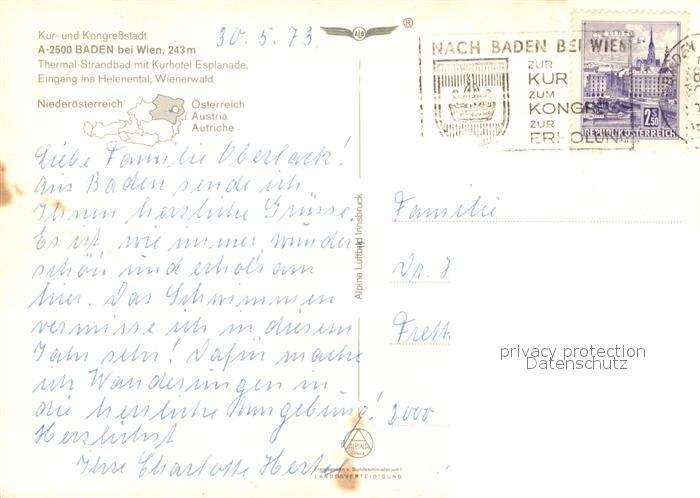 Kur- und Kongreßstadt
A-2500 BADEN bei Wien, 243 m
Thermal-Strandbad mit Kurhotel Esplanade,
Eingang ins Helenental, Wienerwald
Niederösterreich
Österreich
Austria
Autriche
30.5.73
®
NACH BADEN BEI WIEN
ZUR
KUR
ZUM
KONGRESS
ZUR
ERHOLUNG
2.50
REPUBLIK ÖSTERREICH
Liebe Familie Oberlack!
Aus Baden sende ich
Ihnen herzliche Grüsse.
Es ist, wie immer, wunder-
schön und erholsam
hier. Das Schwimmen
vermisse ich in diesem
Jahr sehr! Dafür mache
ich Wanderungen in
die herrliche Umgebung!
Herzlichst
Ihre Charlotte Hertel
Alpine Luftbild Innsbruck
Familie
Dr.
2000
ALPINA
Bundesministerium f.
LANDESVERTEIDIGUNG
privacy protection
Datenschutz